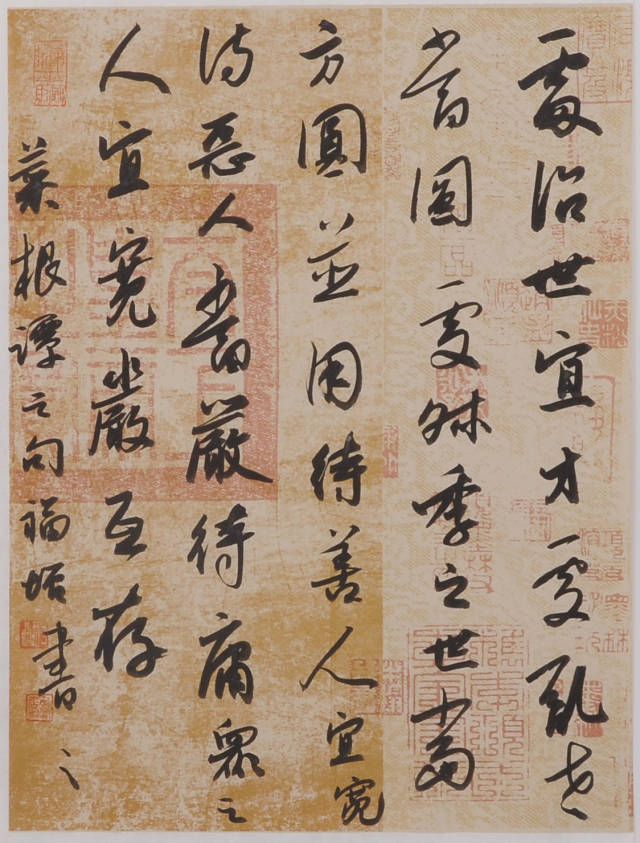 處治世宜方處亂世
當圓處叔季之世當
方圓並用待善人宜寬
待惡人當嚴待庸眾之
人宜寬嚴互存
菜根譚之句福書